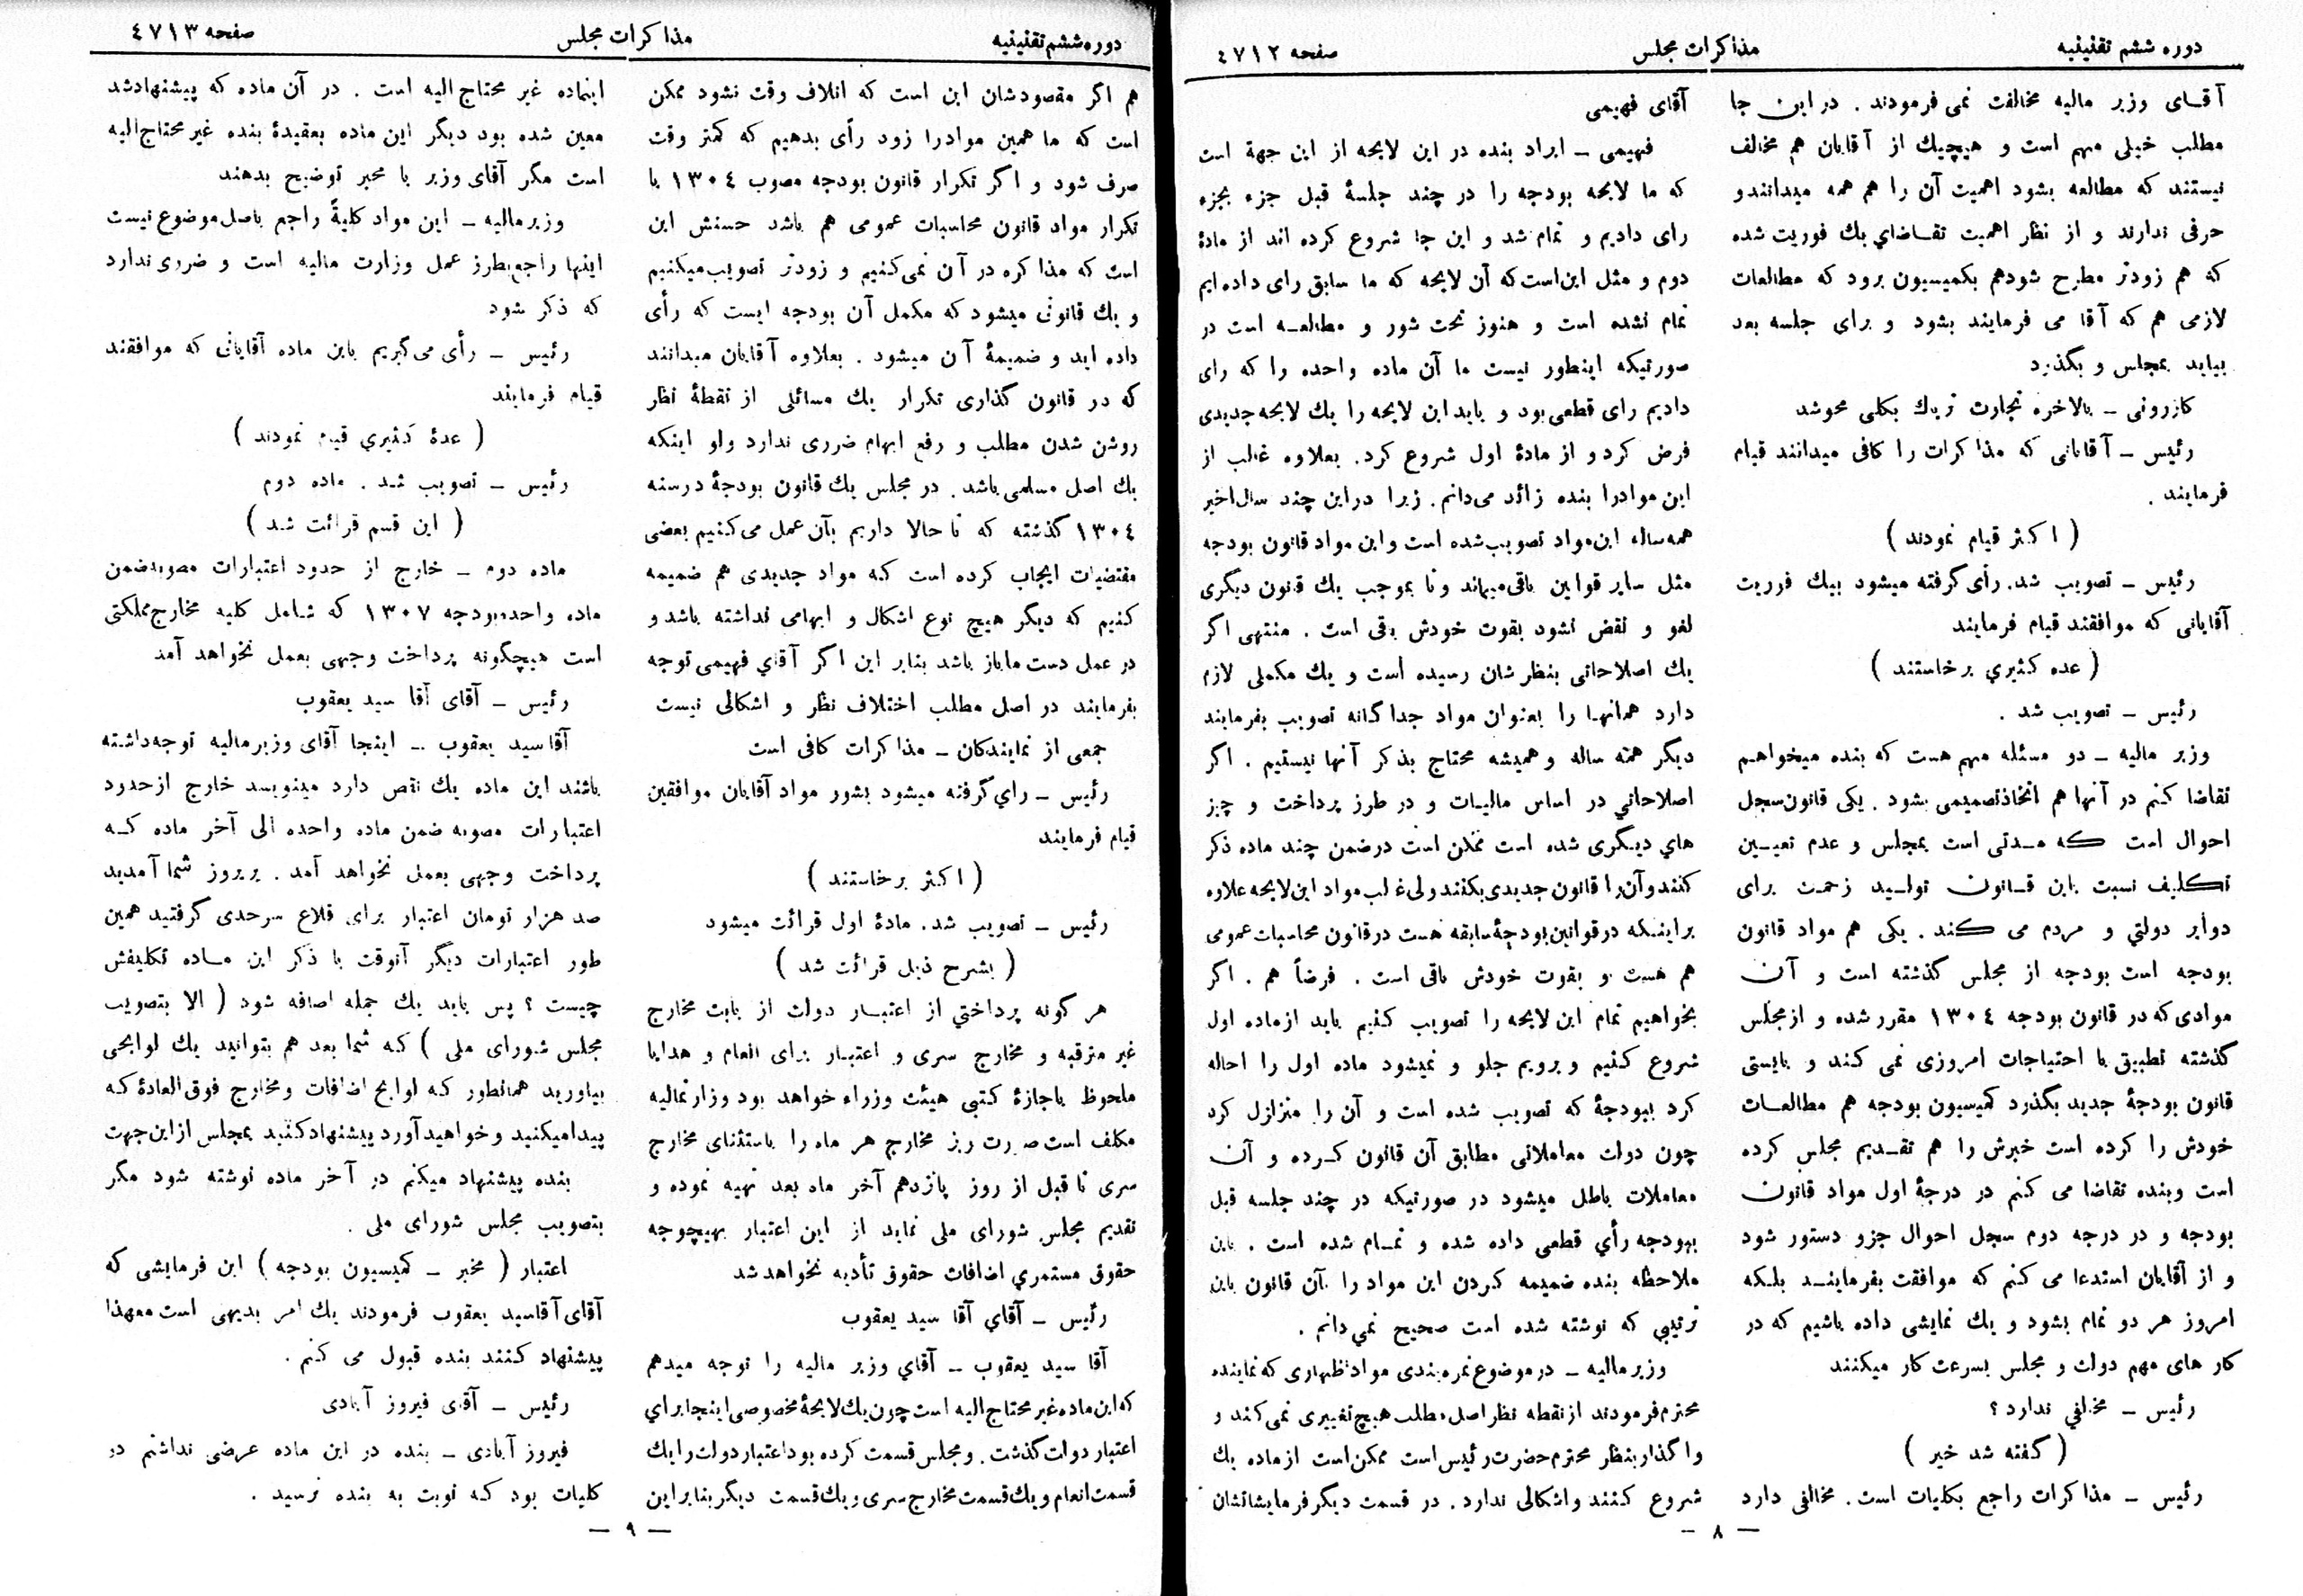 دوره ششم تقنینیه
مذاکرات مجلس
صفحه ٤٧١٢
آقای وزیر مالیه مخالفت نمی فرمودند . در این جا
مطلب خیلی مهم است و هیچیك از آقایان هم مخالف
نیستند که مطالعه بشود اهمیت آن را هم همه میدانند و
حرفی ندارند و از نظر اهمیت تقاضاي یك فوریت شده
که هم زودتر مطرح شود هم بکمیسیون برود که مطالعات
لازمی هم که آقا می فرمایند بشود و برای جلسه بعد
بیاید بمجلس و بگذرد
کازرونی ـ بالاخره تجارت تریاك بکلی محو شد
رئیس ـ آقایانی که مذاکرات را کافی میدانند قیام
فرمایند .
( اکثر قیام نمودند )
رئیس ـ تصویب شد . رأی گرفته میشود بیك فوریت
آقایانی که موافقند قیام فرمایند
( عده کثیري برخاستند )
رئیس ـ تصویب شد .
وزیر مالیه ـ دو مسئله مهم هست که بنده میخواهم
تقاضا کنم در آنها هم اتخاذ تصمیمی بشود . یکی قانون سجل
احوال است که مدتی است بمجلس و عدم تعیین
تکلیف نسبت باین قانون تولید زحمت برای
دوایر دولتي و مردم می کند . یکی هم مواد قانون
بودجه است بودجه از مجلس گذشته است و آن
موادی که در قانون بودجه ١٣٠٤ مقرر شده و از مجلس
گذشته تطبیق با احتیاجات امروزی نمی کند و بایستی
قانون بودجۀ جدید بگذرد کمیسیون بودجه هم مطالعات
خودش را کرده است خبرش را هم تقدیم مجلس کرده
است و بنده تقاضا می کنم در درجۀ اول مواد قانون
بودجه و در درجه دوم سجل احوال جزو دستور شود
و از آقایان استدعا می کنم که موافقت بفرمایند بلکه
امروز هر دو تمام بشود و یك نمایشی داده باشیم که در
کار های مهم دولت و مجلس بسرعت کار میکنند
رئیس ـ مخالفي ندارد ؟
( گفته شد خیر )
رئیس ـ مذاکرات راجع بکلیات است . مخالفی دارد
آقای فهیمی
فهیمی ـ ایراد بنده در این لایحه از این جهة است
که ما لایحه بودجه را در چند جلسۀ قبل جزء بجزء
رای دادیم و تمام شد و این جا شروع کرده اند از مادۀ
دوم و مثل این است که آن لایحه که ما سابق رای داده ایم
تمام نشده است و هنوز تحت شور و مطالعه است در
صورتیکه اینطور نیست ما آن ماده واحده را که رای
دادیم رای قطعی بود و باید این لایحه را یك لایحه جدیدی
فرض کرد و از مادۀ اول شروع کرد . بعلاوه غالب از
این مواد را بنده زائد می دانم . زیرا در این چند سال اخیر
همه ساله این مواد تصویب شده است و این مواد قانون بودجه
مثل سایر قوانین باقی میماند و تا بموجب یك قانون دیگری
لغو و نقض نشود بقوت خودش باقی است . منتهی اگر
یك اصلاحاتی بنظرشان رسیده است و یك مکملی لازم
دارد همانها را بعنوان مواد جداگانه تصویب بفرمایند
دیگر همه ساله و همیشه محتاج بذکر آنها نیستیم . اگر
اصلاحاتي در اساس مالیات و در طرز پرداخت و چیز
هاي دیگری شده است ممکن است در ضمن چند ماده ذکر
کنند و آن را قانون جدیدی بکنند ولی غالب مواد این لایحه علاوه
بر اینکه در قوانین بودجۀ سابقه هست در قانون محاسبات عمومی
هم هست و بقوت خودش باقی است . فرضاً هم . اگر
بخواهیم تمام این لایحه را تصویب کنیم باید از ماده اول
شروع کنیم و برویم جلو و نمیشود ماده اول را احاله
کرد ببودجۀ که تصویب شده است و آن را متزلزل کرد
چون دولت معاملاتی مطابق آن قانون کرده و آن
معاملات باطل میشود در صورتیکه در چند جلسه قبل
ببودجه رأي قطعی داده شده و تمام شده است . باین
ملاحظه بنده ضمیمه کردن این مواد را بآن قانون باین
ترتیبي که نوشته شده است صحیح نمي دانم .
وزیر مالیه ـ در موضوع نمره بندی مواد اظهاری که نماینده
محترم فرمودند از نقطه نظر اصل مطلب هیچ تغییری نمی کند و
واگذار بنظر محترم حضرت رئیس است ممکن است از ماده یك
شروع کنند و اشکالی ندارد . در قسمت دیگر فرمایشاتشان
— ٨ —
دوره ششم تقنینیه
مذاکرات مجلس
صفحه ٤٧١٣
هم اگر مقصودشان این است که اتلاف وقت نشود ممکن
است که ما همین مواد را زود رأی بدهیم که کمتر وقت
صرف شود و اگر تکرار قانون بودجه مصوب ١٣٠٤ یا
تکرار مواد قانون محاسبات عمومی هم باشد حسنش این
است که مذاکره در آن نمی کنیم و زودتر تصویب میکنیم
و یك قانونی میشود که مکمل آن بودجه ایست که رأی
داده اید و ضمیمۀ آن میشود . بعلاوه آقایان میدانند
که در قانون گذاری تکرار یك مسائلی از نقطۀ نظر
روشن شدن مطلب و رفع ابهام ضرری ندارد ولو اینکه
یك اصل مسلمی باشد . در مجلس یك قانون بودجۀ در سنه
١٣٠٤ گذشته که تا حالا داریم بآن عمل می کنیم بعضی
مقتضیات ایجاب کرده است که مواد جدیدی هم ضمیمه
کنیم که دیگر هیچ نوع اشکال و ابهامی نداشته باشد و
در عمل دست ما باز باشد بنابر این اگر آقاي فهیمی توجه
بفرمایند در اصل مطلب اختلاف نظر و اشکالی نیست
جمعی از نمایندکان ـ مذاکرات کافی است
رئیس ـ رأي گرفته میشود بشور مواد آقایان موافقین
قیام فرمایند
( اکثر برخاستند )
رئیس ـ تصویب شد . مادۀ اول قرائت میشود
( بشرح ذیل قرائت شد )
هر گونه پرداختي از اعتبار دولت از بابت مخارج
غیر مترقبه و مخارج سری و اعتبار برای انعام و هدایا
ملحوظ باجازۀ کتبی هیئت وزراء خواهد بود وزارتمالیه
مکلف است صورت ریز مخارج هر ماه را باستثنای مخارج
سری تا قبل از روز پانزدهم آخر ماه بعد تهیه نموده و
تقدیم مجلس شورای ملی نماید از این اعتبار بهیچوجه
حقوق مستمري اضافات حقوق تأدیه نخواهد شد
رئیس ـ آقاي آقا سید یعقوب
آقا سید یعقوب ـ آقاي وزیر مالیه را توجه میدهم
که این ماده غیر محتاج الیه است چون یك لایحۀ مخصوصی اینجا براي
اعتبار دولت گذشت . و مجلس قسمت کرده بود اعتبار دولت را یك
قسمت انعام و یك قسمت مخارج سری و یك قسمت دیگر بنابر این
اینماده غیر محتاج الیه است . در آن ماده که پیشنهاد شد
معین شده بود دیگر این ماده بعقیدۀ بنده غیر محتاج الیه
است مگر آقای وزیر یا مخبر توضیح بدهند
وزیر مالیه ـ این مواد کلیةً راجع باصل موضوع نیست
اینها راجع بطرز عمل وزارت مالیه است و ضرری ندارد
که ذکر شود
رئیس ـ رأی می گیریم باین ماده آقایانی که موافقند
قیام فرمایند
( عدۀ کثیري قیام نمودند )
رئیس ـ تصویب شد . ماده دوم
( این قسم قرائت شد )
ماده دوم ـ خارج از حدود اعتبارات مصوبه ضمن
ماده واحده بودجه ١٣٠٧ که شامل کلیه مخارج مملکتی
است هیچگونه پرداخت وجهی بعمل نخواهد آمد
رئیس ـ آقای آقا سید یعقوب
آقا سید یعقوب ـ اینجا آقای وزیر مالیه توجه داشته
باشند این ماده یك نقص دارد مینویسد خارج از حدود
اعتبارات مصوبه ضمن ماده واحده الی آخر ماده که
پرداخت وجهی بعمل نخواهد آمد . پریروز شما آمدید
صد هزار تومان اعتبار برای قلاع سرحدی گرفتید همین
طور اعتبارات دیگر آنوقت با ذکر این ماده تکلیفش
چیست ؟ پس باید یك جمله اضافه شود ( الا بتصویب
مجلس شورای ملی ) که شما بعد هم بتوانید یك لوایحی
بیاورید همانطور که لوایح اضافات و مخارج فوق العادۀ که
پیدا میکنید و خواهید آورد پیشنهاد کنید بمجلس از این جهت
بنده پیشنهاد میکنم در آخر ماده نوشته شود مگر
بتصویب مجلس شورای ملی .
اعتبار ( مخبر ـ کمیسیون بودجه ) این فرمایشی که
آقای آقا سید یعقوب فرمودند یك امر بدیهی است معهذا
پیشنهاد کنند بنده قبول می کنم .
رئیس ـ آقای فیروز آبادی
فیروز آبادی ـ بنده در این ماده عرضی نداشتم در
کلیات بود که نوبت به بنده نرسید .
— ٩ —